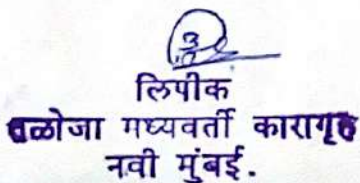 लिपीक
तळोजा मध्यवर्ती कारागृह
नवी मुंबई.